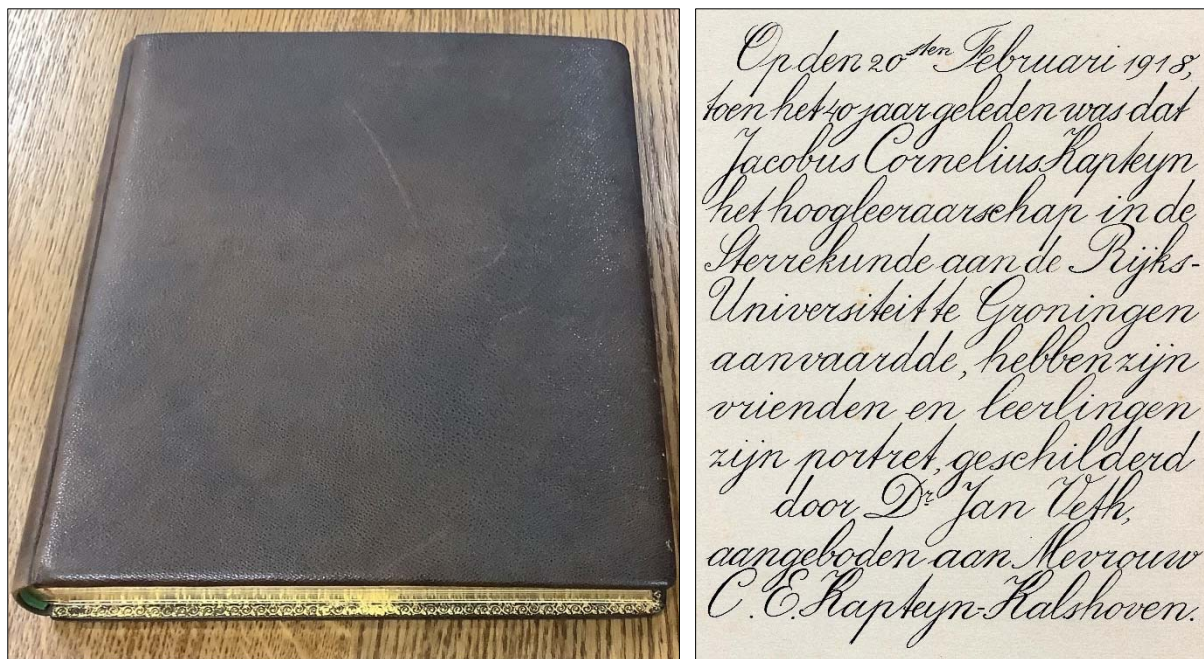 Op den 20sten Februari 1918,
toen het 40 jaar geleden was dat
Jacobus Cornelius Kapteyn
het hoogleeraarschap in de
Sterrekunde aan de Rijks-
Universiteit te Groningen
aanvaardde, hebben zijn
vrienden en leerlingen
zijn portret, geschilderd
door Dr. Jan Veth,
aangeboden aan Mevrouw
C. E. Kapteyn-Kalshoven.